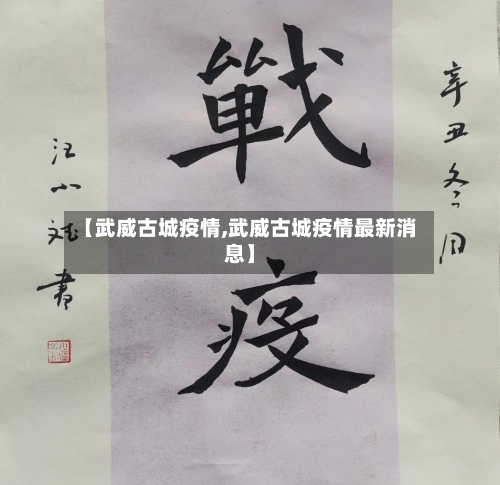 戰疫
辛丑冬月
汪小斌書
【武威古城疫情,武威古城疫情最新消
息】